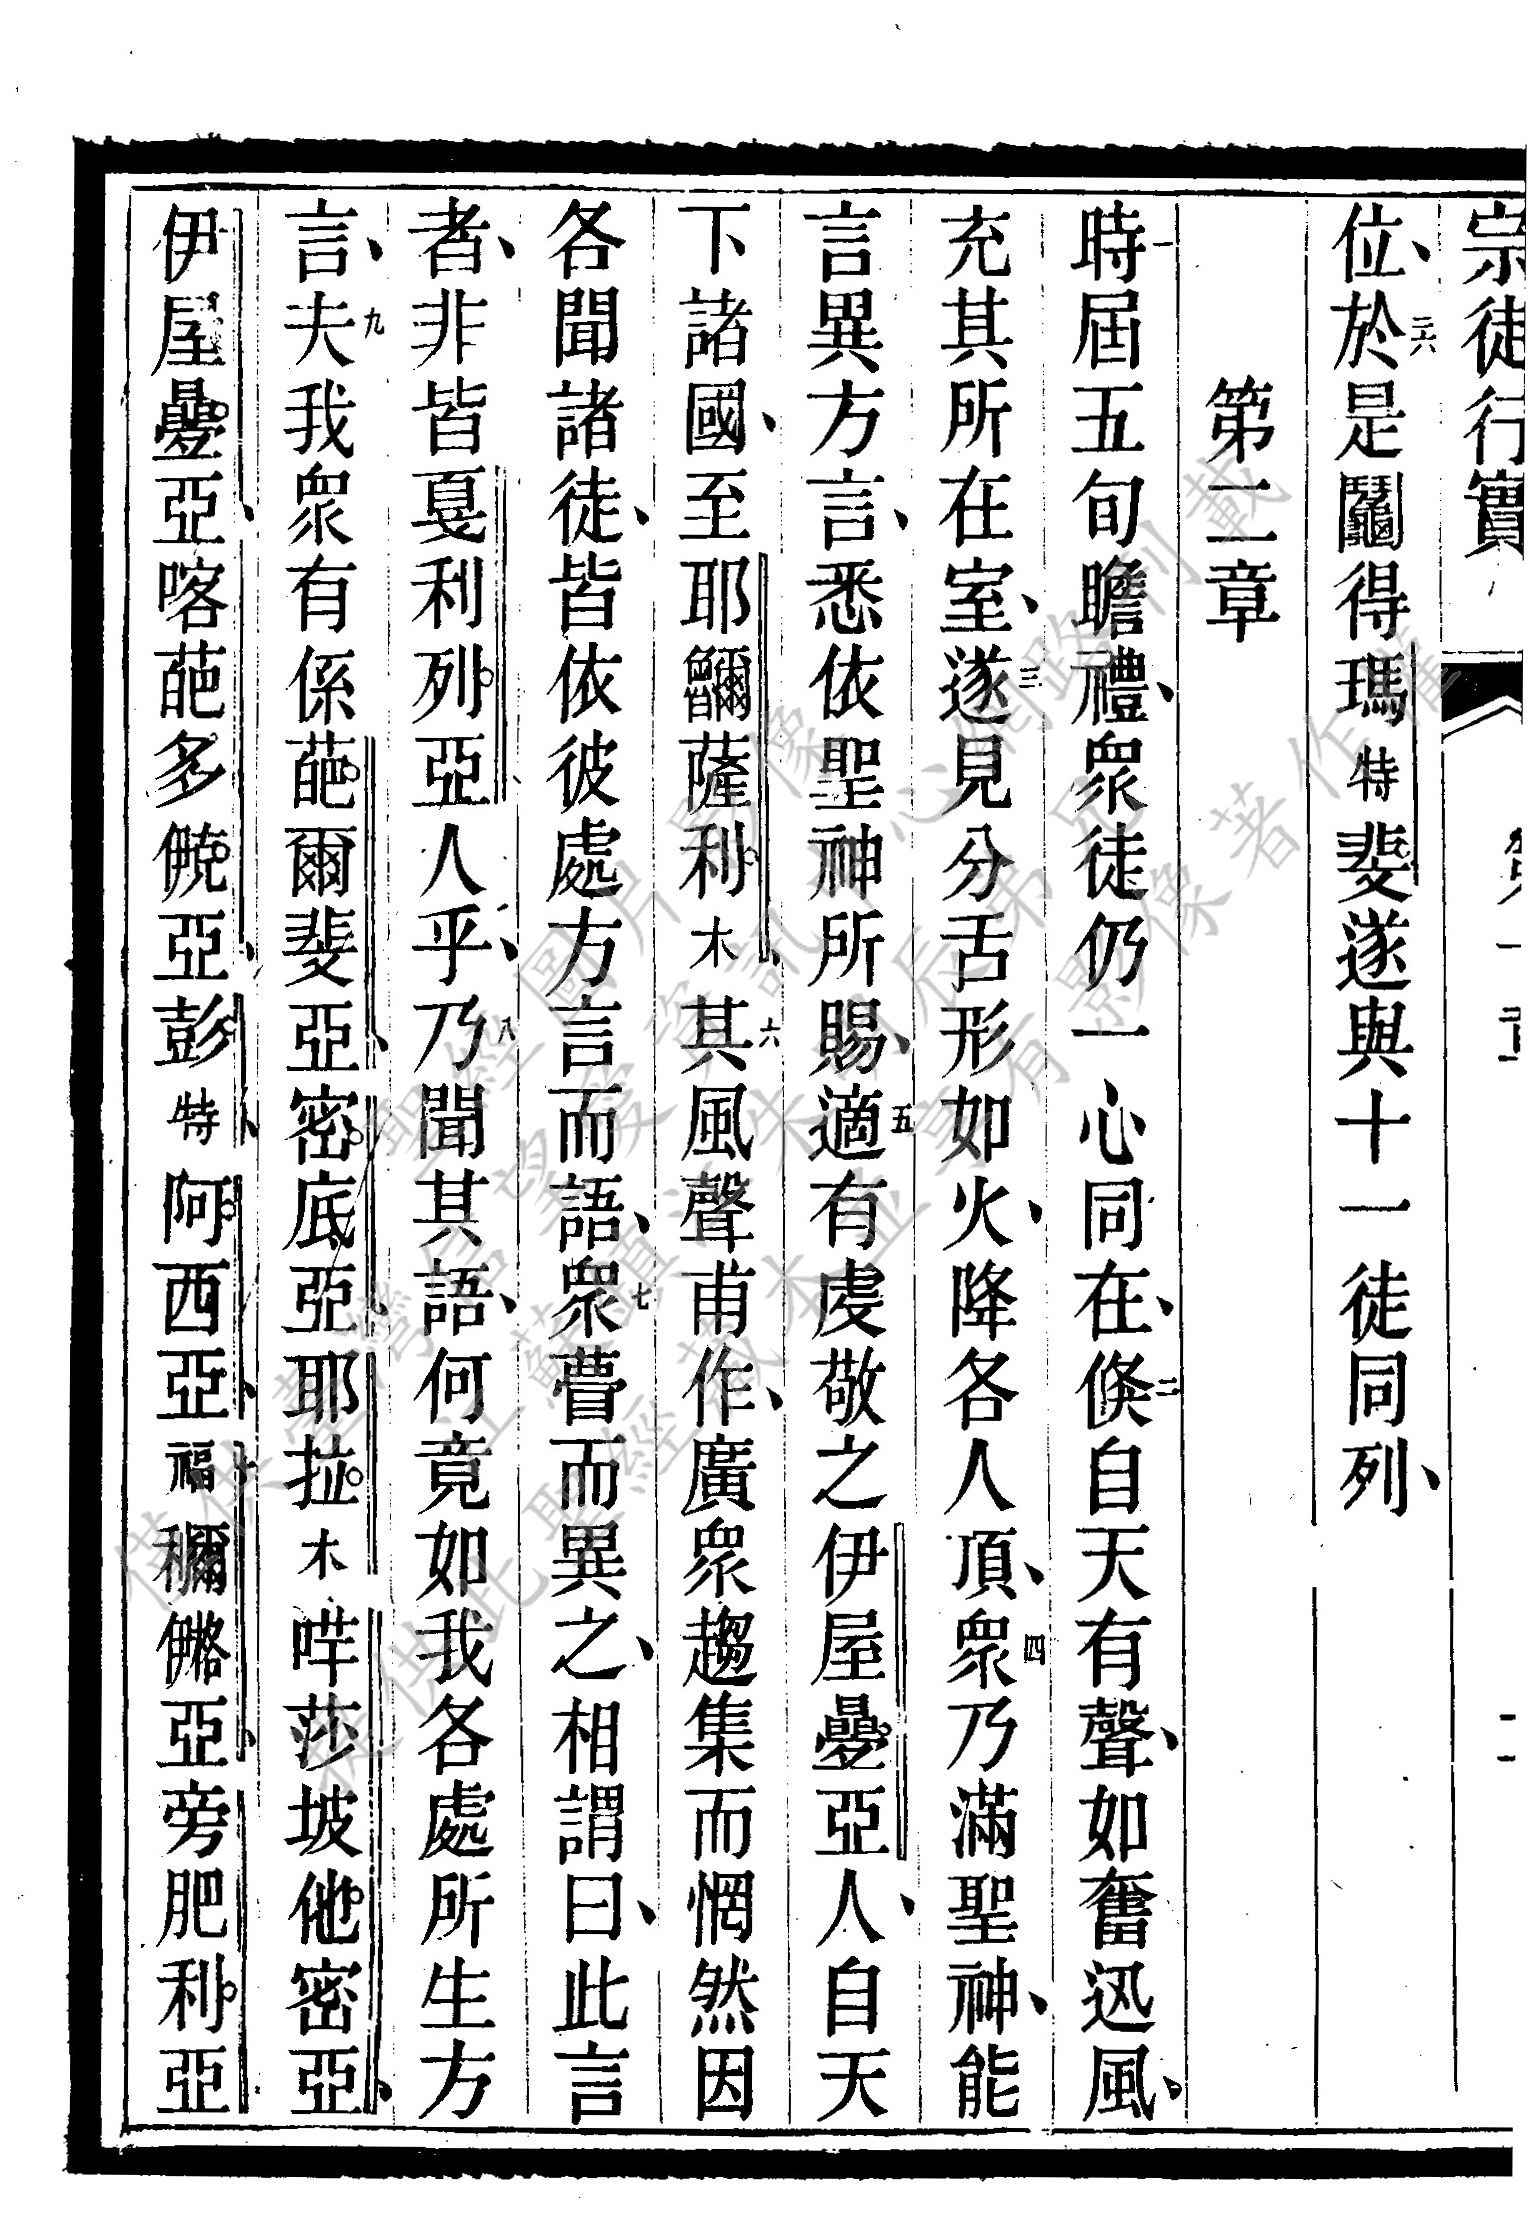 宗徒行實 第一章 二
位、二六於是鬮得瑪特斐遂與十一徒同列、
第二章
一時屆五旬瞻禮、衆徒仍一心同在、二倐自天有聲、如奮迅風、
充其所在室、三遂見分舌形如火、降各人頂、四衆乃滿聖神、能
言異方言、悉依聖神所賜、五適有虔敬之伊屋疊亞人、自天
下諸國、至耶薩利木、六其風聲甫作、廣衆趨集而惘然因
各聞諸徒、皆依彼處方言而語、七衆瞢而異之、相謂曰、此言
者、非皆戛利列亞人乎、八乃聞其語、何竟如我各處所生方
言、九夫我衆有係葩爾斐亞、密底亞、耶菈木哶莎坡他密亞、
伊屋疊亞、喀葩多亞、彭特、阿西亞、十福穪亞、旁肥利亞